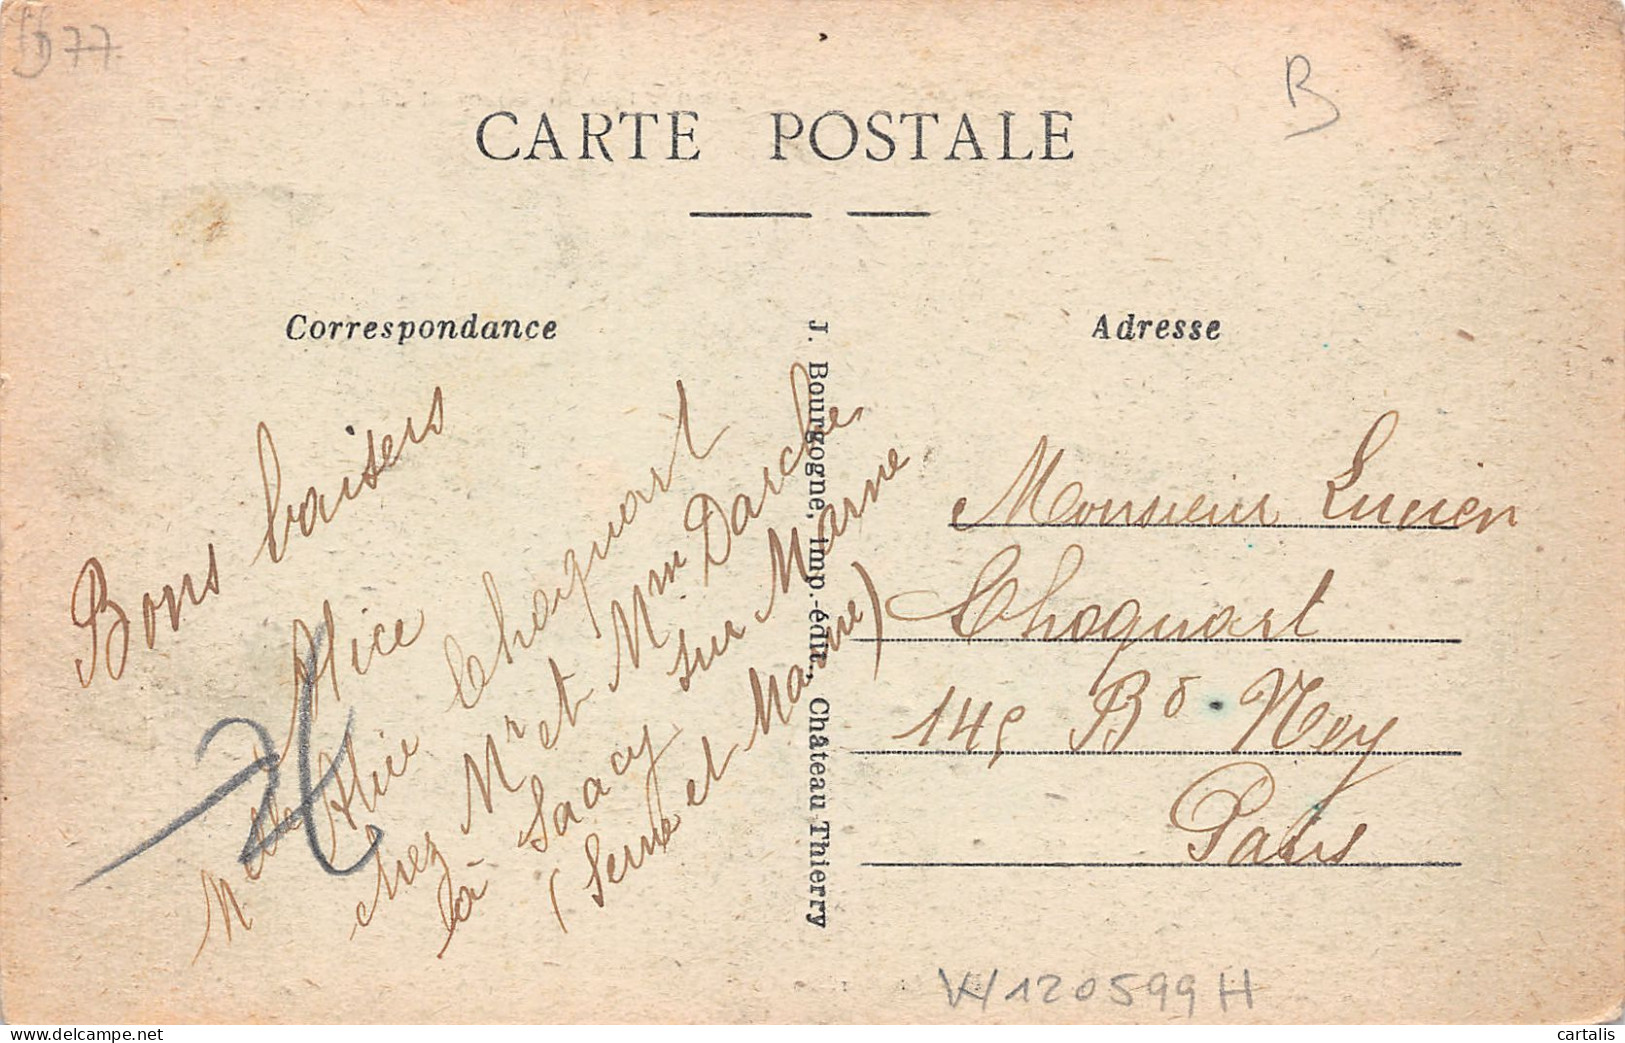 77
B
CARTE POSTALE
Correspondance
Adresse
J. Bourgogne, imp.-édit., Château Thierry
Bons baisers
Alice
Melle Alice Choquart
chez Mr et Mme Darche
à Saacy sur Marne
(Seine et Marne)
Monsieur Lucien
Choquart
145 Bd Ney
Paris
W120599H
cartalis